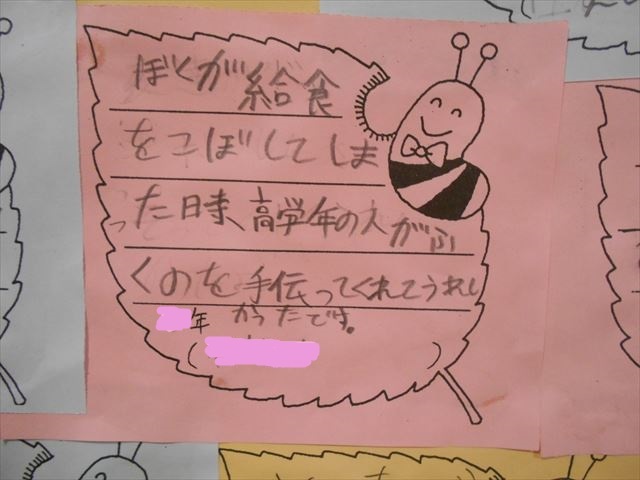 ぼくが給食
をこぼしてしま
った時、高学年の人がふ
くのを手伝ってくれてうれし
年 かったです。
(          )